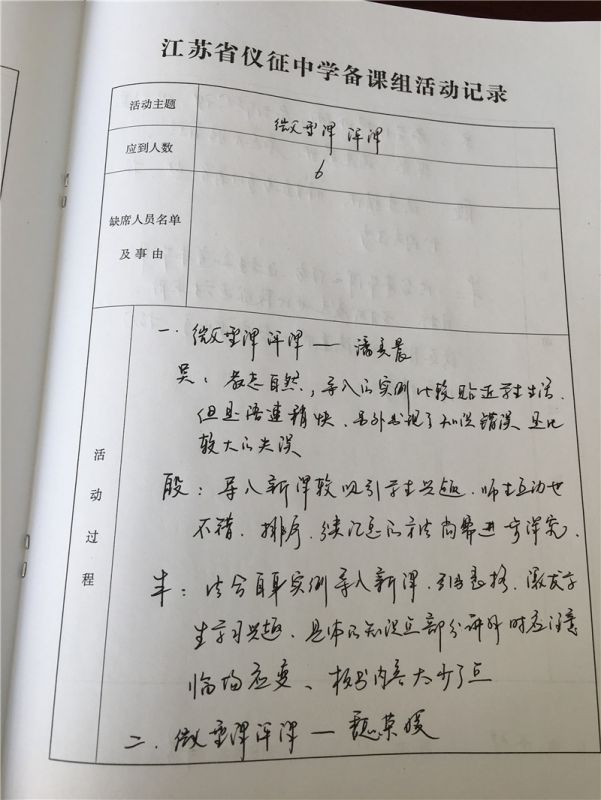 江苏省仪征中学备课组活动记录
活动主题
微型课 评课
应到人数
6
缺席人员名单
及事由
活动过程
一.微型课评课——潘晨
吴:教态自然,导入的实例比较贴近学生生活.
但是语速稍快.另外出现了知识错误 是比
较大的失误
殷:导入新课较吸引学生兴趣.师生互动也
不错.排序.归类汇总的方法尚需进一步深究.
丰:结合自身实例导入新课.引出表格.激发学
生学习兴趣.具体的知识点部分讲评时应注意
临场应变、板书内容太少了点
二.微型课评课——魏荣媛